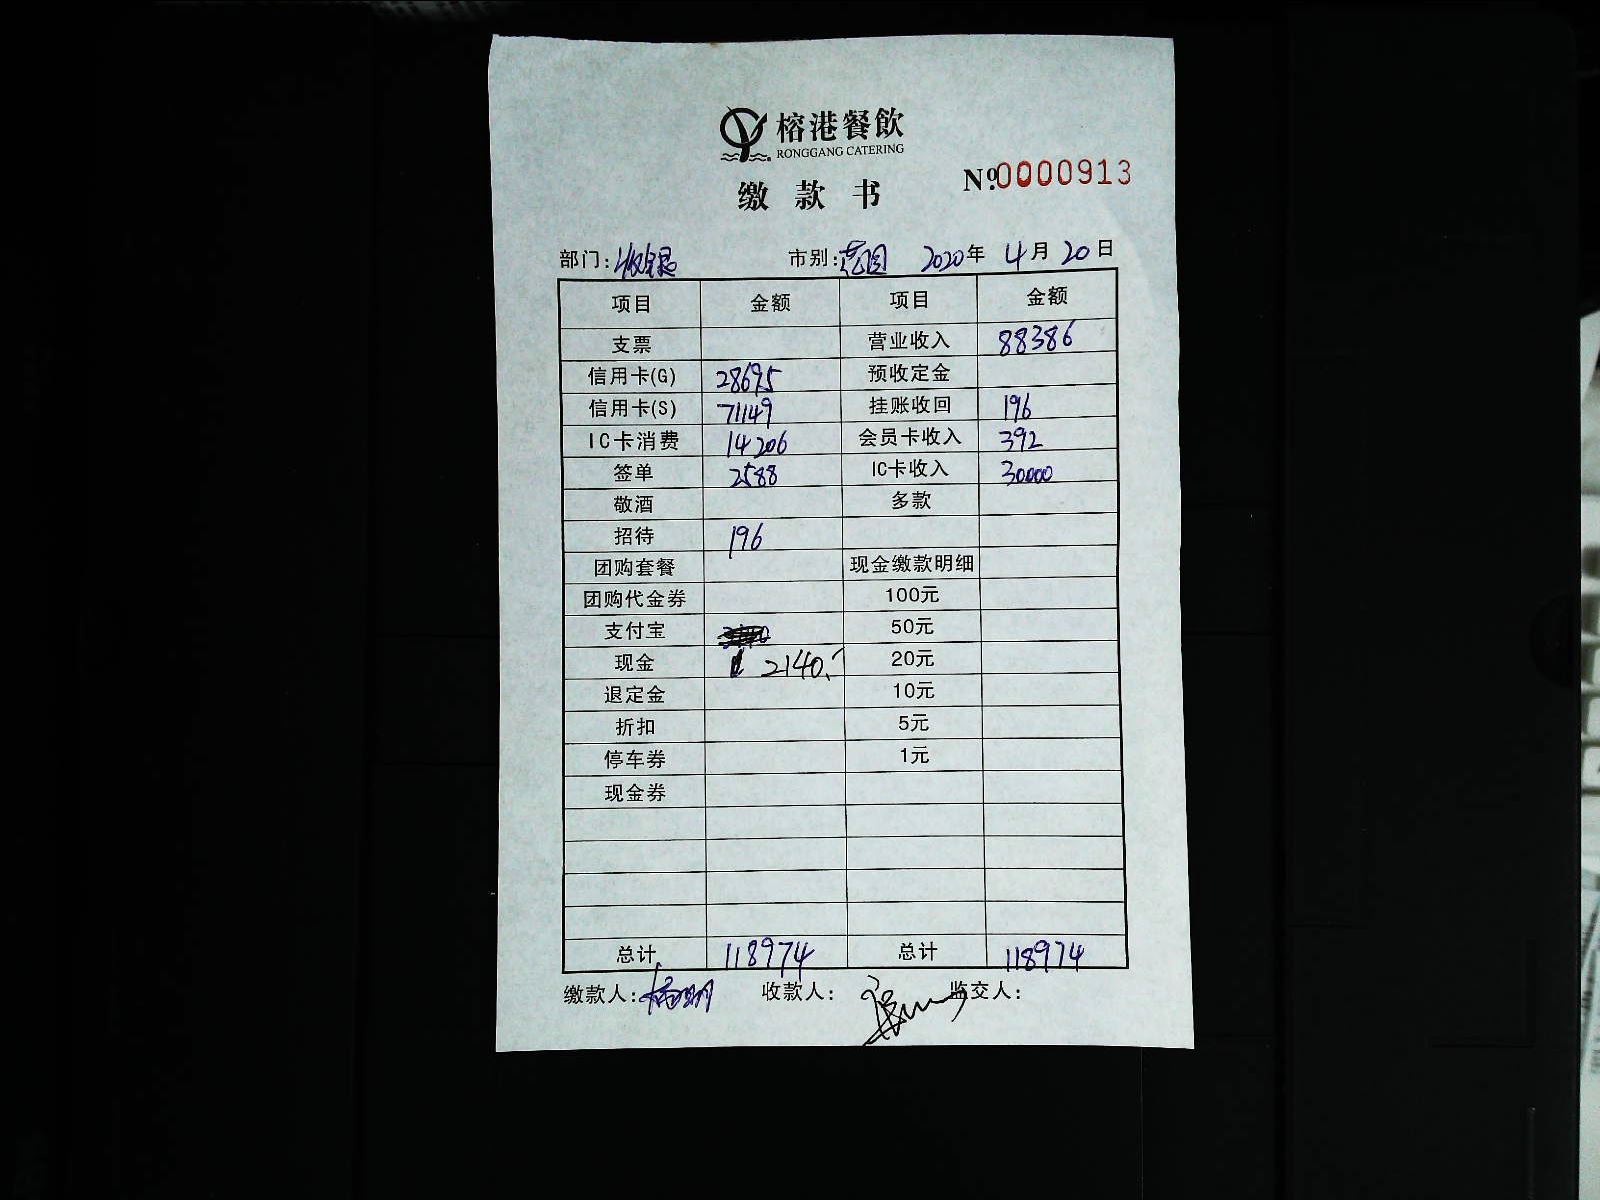 榕港餐飲
RONGGANG CATERING
缴款书
Nº0000913
部门:收银 市别:花园 2020年4月20日
项目 金额 项目 金额
支票 营业收入 88386
信用卡(G) 28695 预收定金
信用卡(S) 71149 挂账收回 196
IC卡消费 14206 会员卡收入 392
签单 2588 IC卡收入 30000
敬酒 多款
招待 196
团购套餐 现金缴款明细
团购代金券 100元
支付宝 50元
现金 2140 20元
退定金 10元
折扣 5元
停车券 1元
现金券
总计 118974 总计 118974
缴款人: 收款人: 监交人: